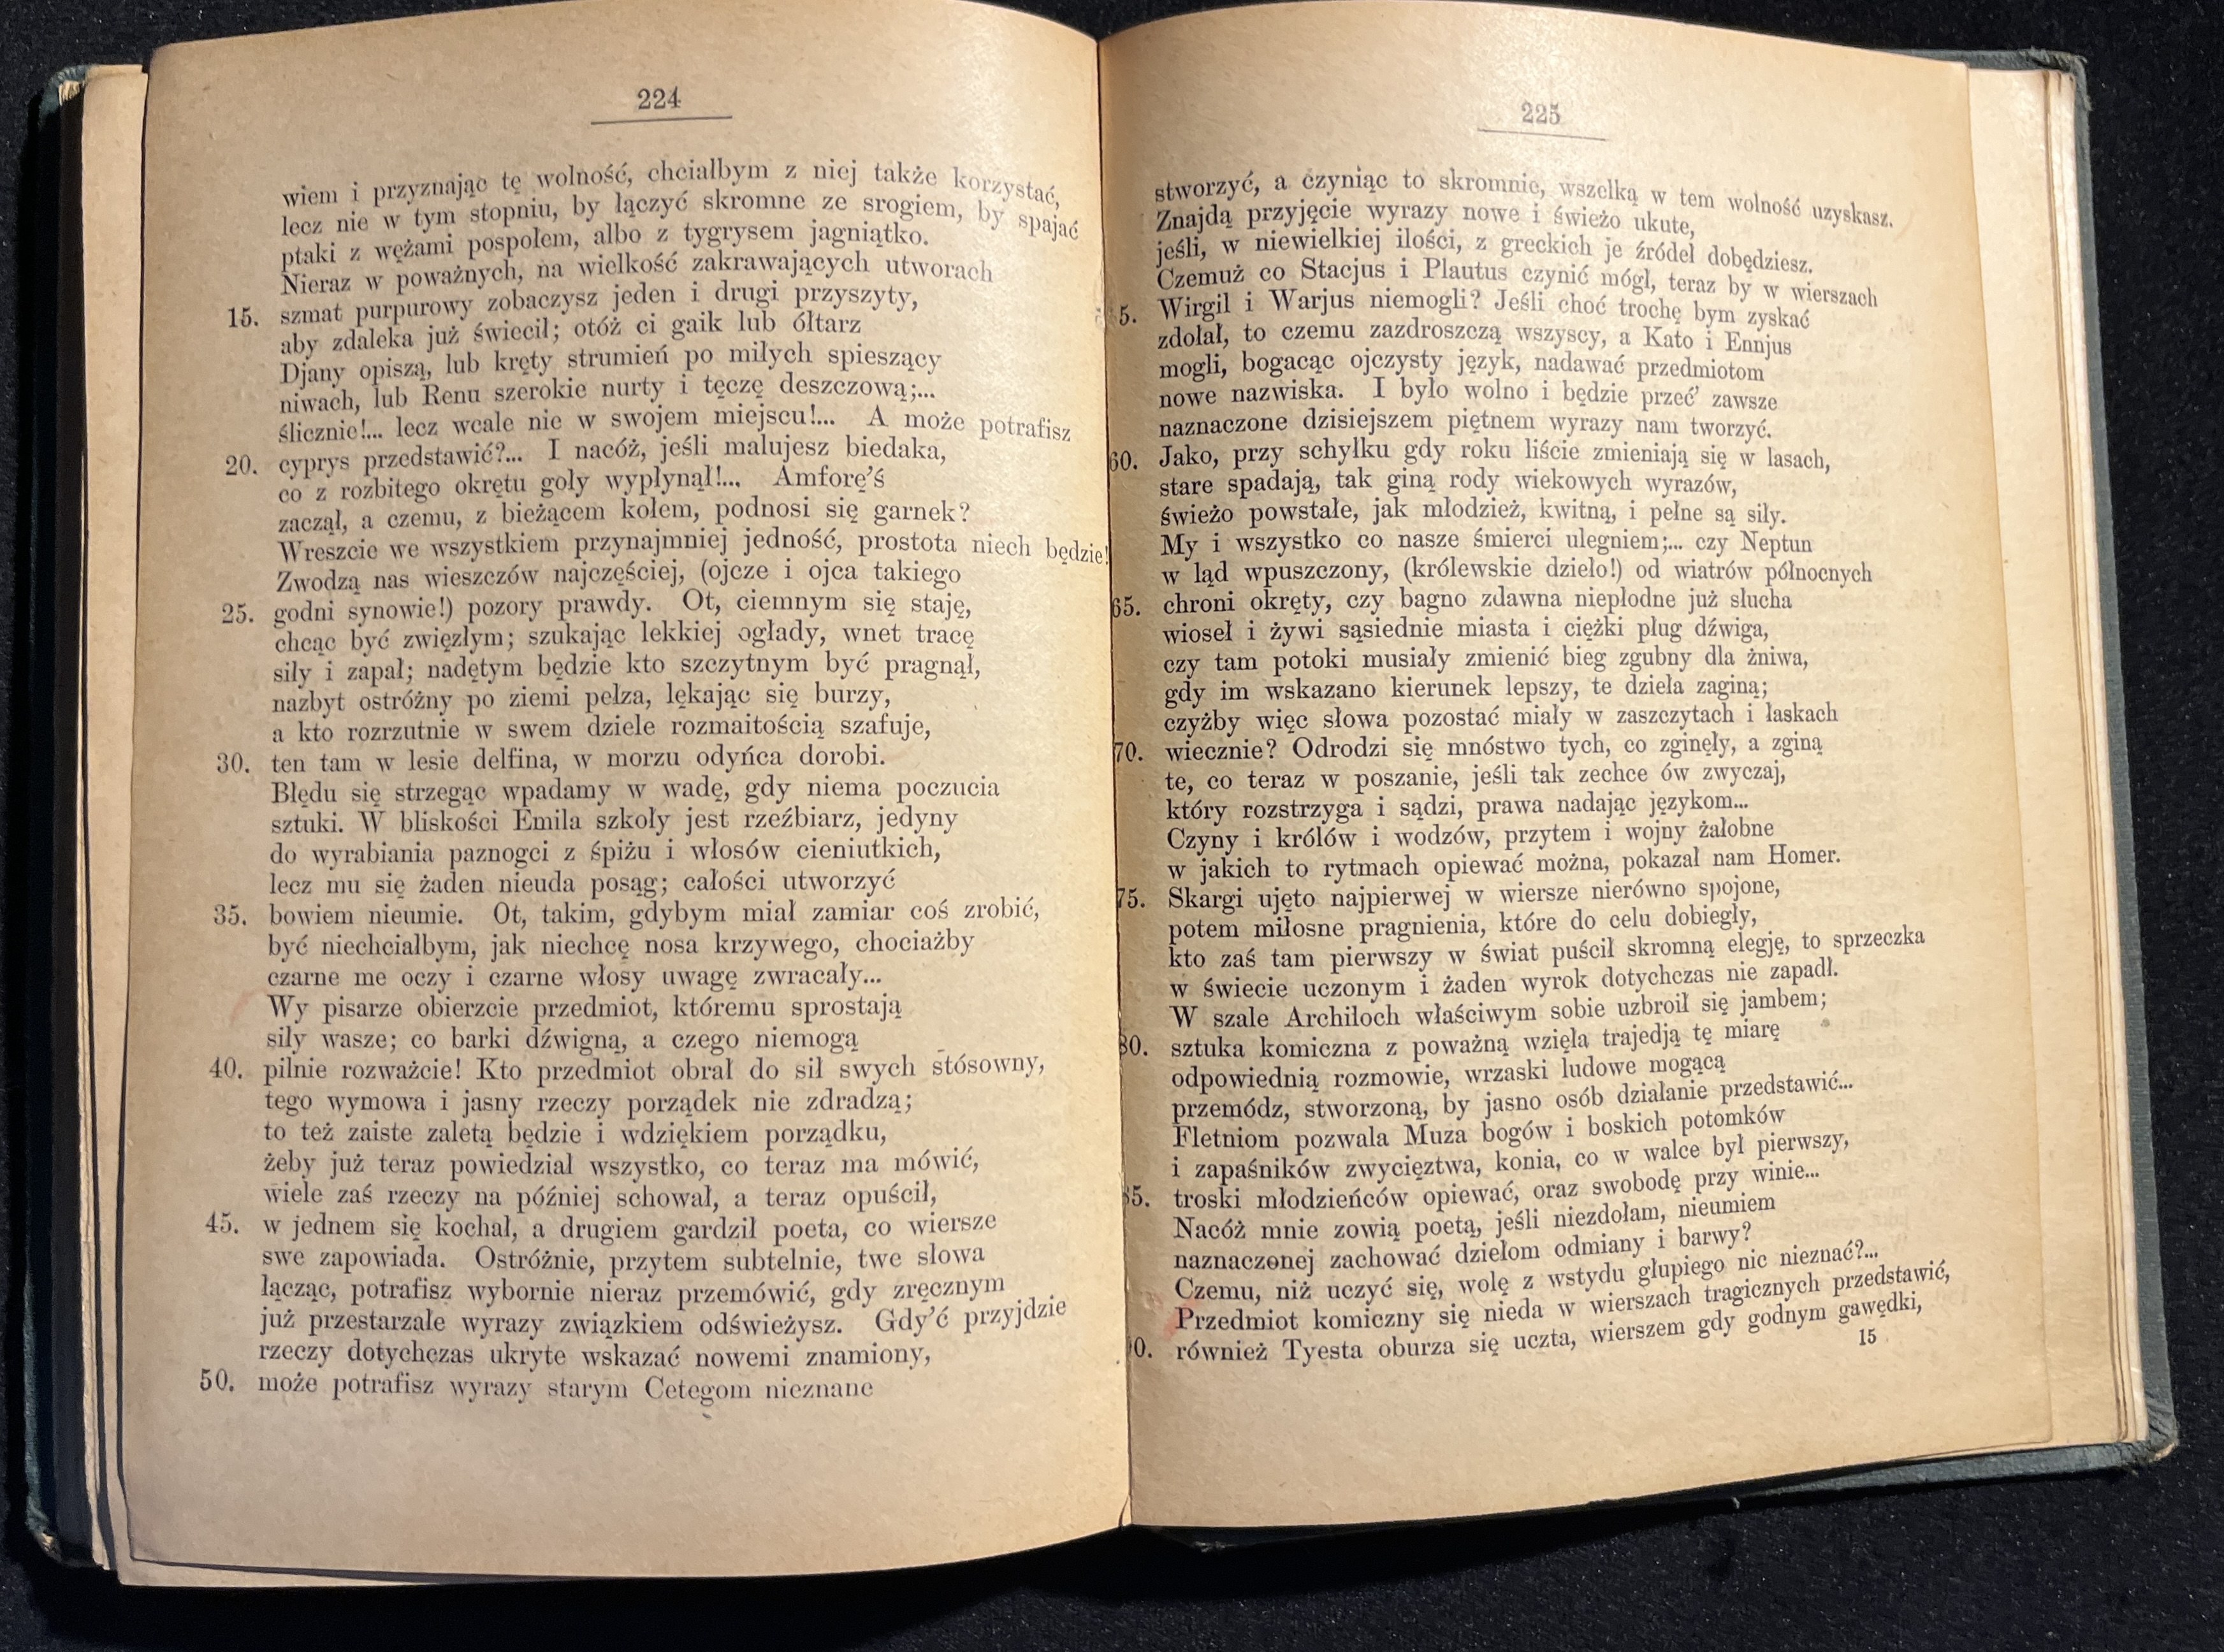 224
wiem i przyznając tę wolność, chciałbym z niej także korzystać,
lecz nie w tym stopniu, by łączyć skromne ze srogiem, by spajać
ptaki z wężami pospołem, albo z tygrysem jagniątko.
Nieraz w poważnych, na wielkość zakrawających utworach
15. szmat purpurowy zobaczysz jeden i drugi przyszyty,
aby zdaleka już świecił; otóż ci gaik lub ółtarz
Djany opiszą, lub kręty strumień po miłych spieszący
niwach, lub Renu szerokie nurty i tęczę deszczową;...
ślicznie!... lecz wcale nie w swojem miejscu!... A może potrafisz
20. cyprys przedstawić?... I nacóż, jeśli malujesz biedaka,
co z rozbitego okrętu goły wypłynął!... Amforę'ś
zaczął, a czemu, z bieżącem kołem, podnosi się garnek?
Wreszcie we wszystkiem przynajmniej jedność, prostota niech będzie!
Zwodzą nas wieszczów najczęściej, (ojcze i ojca takiego
25. godni synowie!) pozory prawdy. Ot, ciemnym się staję,
chcąc być zwięzłym; szukając lekkiej ogłady, wnet tracę
siły i zapał; nadętym będzie kto szczytnym być pragnął,
nazbyt ostróżny po ziemi pełza, lękając się burzy,
a kto rozrzutnie w swem dziele rozmaitością szafuje,
30. ten tam w lesie delfina, w morzu odyńca dorobi.
Błędu się strzegąc wpadamy w wadę, gdy niema poczucia
sztuki. W bliskości Emila szkoły jest rzeźbiarz, jedyny
do wyrabiania paznogci z śpiżu i włosów cieniutkich,
lecz mu się żaden nieuda posąg; całości utworzyć
35. bowiem nieumie. Ot, takim, gdybym miał zamiar coś zrobić,
być niechciałbym, jak niechcę nosa krzywego, chociażby
czarne me oczy i czarne włosy uwagę zwracały...
Wy pisarze obierzcie przedmiot, któremu sprostają
siły wasze; co barki dźwigną, a czego niemogą
40. pilnie rozważcie! Kto przedmiot obrał do sił swych stósowny,
tego wymowa i jasny rzeczy porządek nie zdradzą;
to też zaiste zaletą będzie i wdziękiem porządku,
żeby już teraz powiedział wszystko, co teraz ma mówić,
wiele zaś rzeczy na później schował, a teraz opuścił,
45. w jednem się kochał, a drugiem gardził poeta, co wiersze
swe zapowiada. Ostróżnie, przytem subtelnie, twe słowa
łącząc, potrafisz wybornie nieraz przemówić, gdy zręcznym
już przestarzałe wyrazy związkiem odświeżysz. Gdy'ć przyjdzie
rzeczy dotychczas ukryte wskazać nowemi znamiony,
50. może potrafisz wyrazy starym Cetegom nieznane
225
stworzyć, a czyniąc to skromnie, wszelką w tem wolność uzyskasz.
Znajdą przyjęcie wyrazy nowe i świeżo ukute,
jeśli, w niewielkiej ilości, z greckich je źródeł dobędziesz.
Czemuż co Stacjus i Plautus czynić mógł, teraz by w wierszach
5. Wirgil i Warjus niemogli? Jeśli choć trochę bym zyskać
zdołał, to czemu zazdroszczą wszyscy, a Kato i Ennjus
mogli, bogacąc ojczysty język, nadawać przedmiotom
nowe nazwiska. I było wolno i będzie przeć' zawsze
naznaczone dzisiejszem piętnem wyrazy nam tworzyć.
60. Jako, przy schyłku gdy roku liście zmieniają się w lasach,
stare spadają, tak giną rody wiekowych wyrazów,
świeżo powstałe, jak młodzież, kwitną, i pełne są siły.
My i wszystko co nasze śmierci ulegniem;... czy Neptun
w ląd wpuszczony, (królewskie dzieło!) od wiatrów północnych
65. chroni okręty, czy bagno zdawna niepłodne już słucha
wioseł i żywi sąsiednie miasta i ciężki pług dźwiga,
czy tam potoki musiały zmienić bieg zgubny dla żniwa,
gdy im wskazano kierunek lepszy, te dzieła zaginą;
czyżby więc słowa pozostać miały w zaszczytach i łaskach
70. wiecznie? Odrodzi się mnóstwo tych, co zginęły, a zginą
te, co teraz w poszanie, jeśli tak zechce ów zwyczaj,
który rozstrzyga i sądzi, prawa nadając językom...
Czyny i królów i wodzów, przytem i wojny żałobne
w jakich to rytmach opiewać można, pokazał nam Homer.
75. Skargi ujęto najpierwej w wiersze nierówno spojone,
potem miłosne pragnienia, które do celu dobiegły,
kto zaś tam pierwszy w świat puścił skromną elegję, to sprzeczka
w świecie uczonym i żaden wyrok dotychczas nie zapadł.
W szale Archiloch właściwym sobie uzbroił się jambem;
80. sztuka komiczna z poważną wzięła trajedją tę miarę
odpowiednią rozmowie, wrzaski ludowe mogącą
przemódz, stworzoną, by jasno osób działanie przedstawić...
Fletniom pozwala Muza bogów i boskich potomków
i zapaśników zwycięztwa, konia, co w walce był pierwszy,
85. troski młodzieńców opiewać, oraz swobodę przy winie...
Nacóż mnie zowią poetą, jeśli niezdołam, nieumiem
naznaczonej zachować dziełom odmiany i barwy?
Czemu, niż uczyć się, wolę z wstydu głupiego nic nieznać?...
Przedmiot komiczny się nieda w wierszach tragicznych przedstawić,
0. również Tyesta oburza się uczta, wierszem gdy godnym gawędki,
15